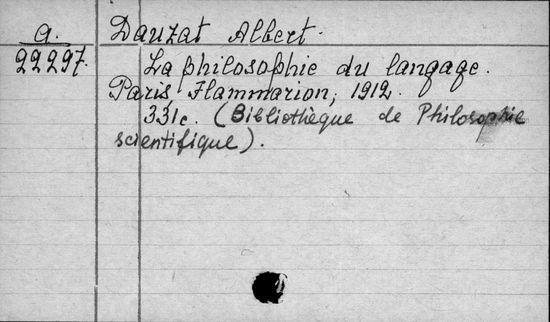 a. Dauzat Albert.
22297. La philosophie du langage.
Paris, Flammarion, 1912.
331c. (Bibliothèque de Philosophie
scientifique).